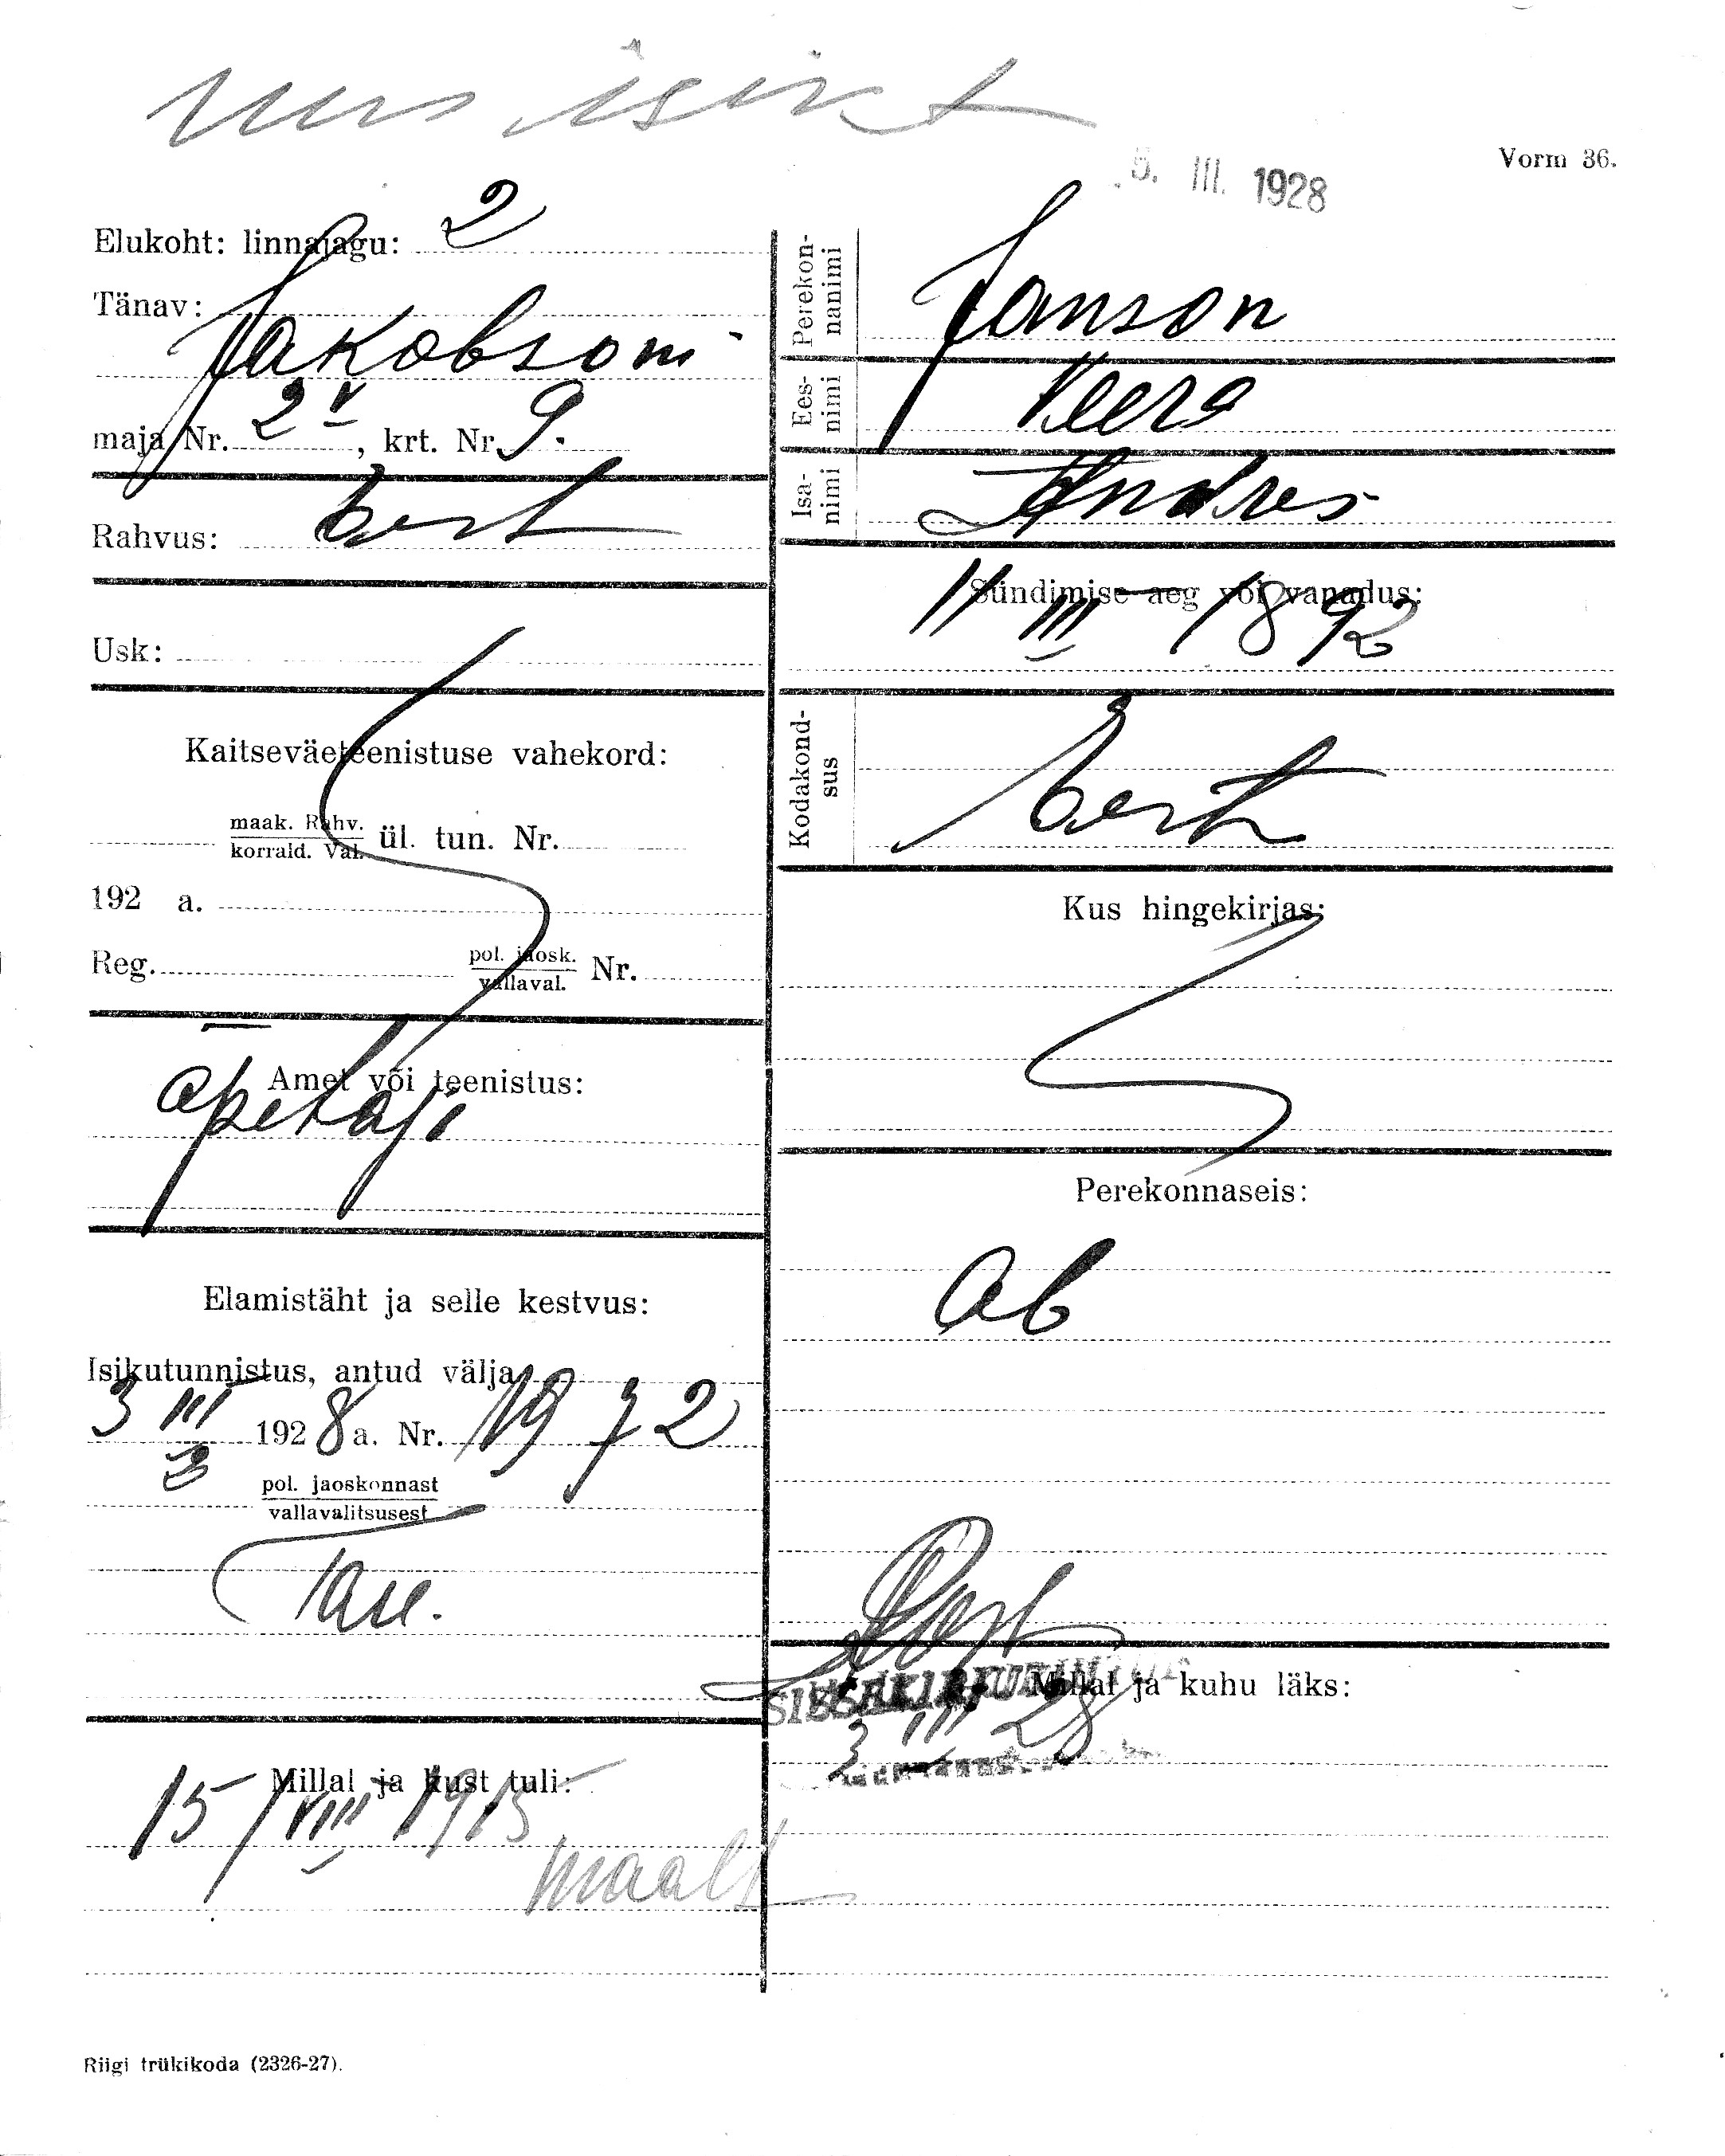 uus isik
5. III. 1928
Vorm 36.
Elukoht: linnajagu: 2
Tänav:
Jakobsoni
maja Nr. 2 v, krt. Nr. 9.
Rahvus: Eest
Usk:
Kaitseväeteenistuse vahekord:
maak. Rahv.
korrald. Val. ül. tun. Nr.
192 a.
Reg. pol. jaosk.
vallaval. Nr.
Amet või teenistus:
õpetaja
Elamistäht ja selle kestvus:
Isikutunnistus, antud välja
3 III 1928 a. Nr. 1972
3
pol. jaoskonnast
vallavalitsusest
Millal ja kust tuli:
15/VIII 1915
maalt
Perekon-
nanimi
Janson
Ees-
nimi
Veera
Isa-
nimi
Andres
Sündimise aeg või vanadus:
11 III 1892
Kodakond-
sus
Eest
Kus hingekirjas:
Perekonnaseis:
ab
Millal ja kuhu läks:
3 III 28
Riigi trükikoda (2326-27).